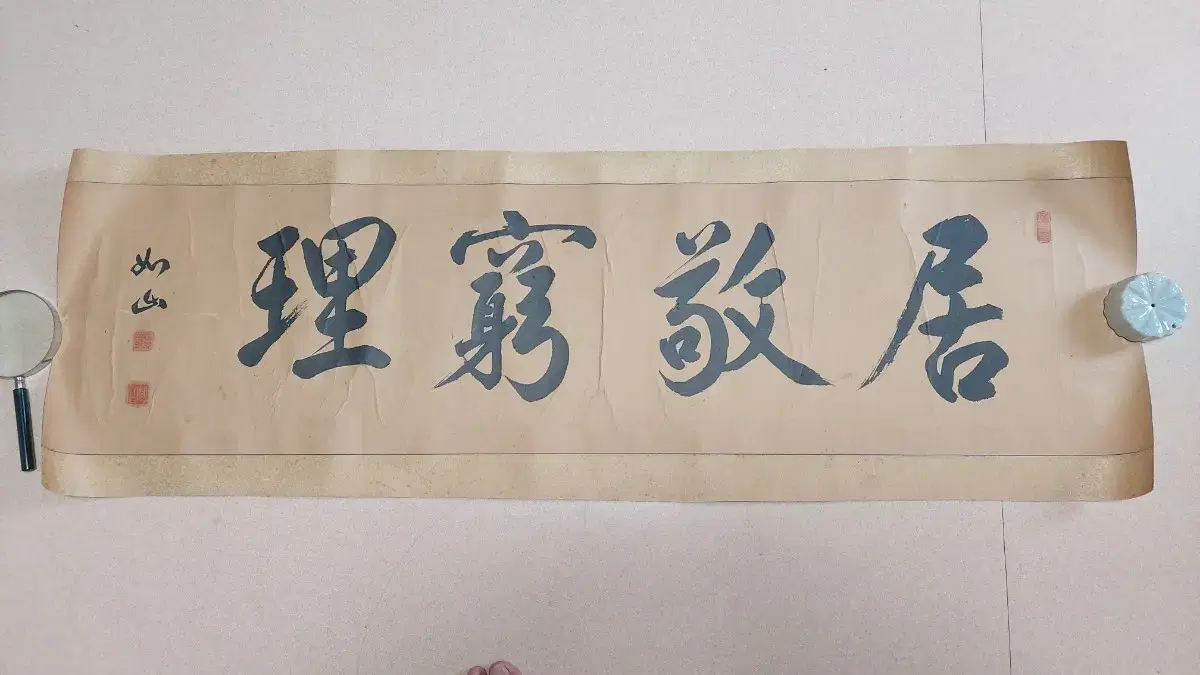 居敬窮理
如山